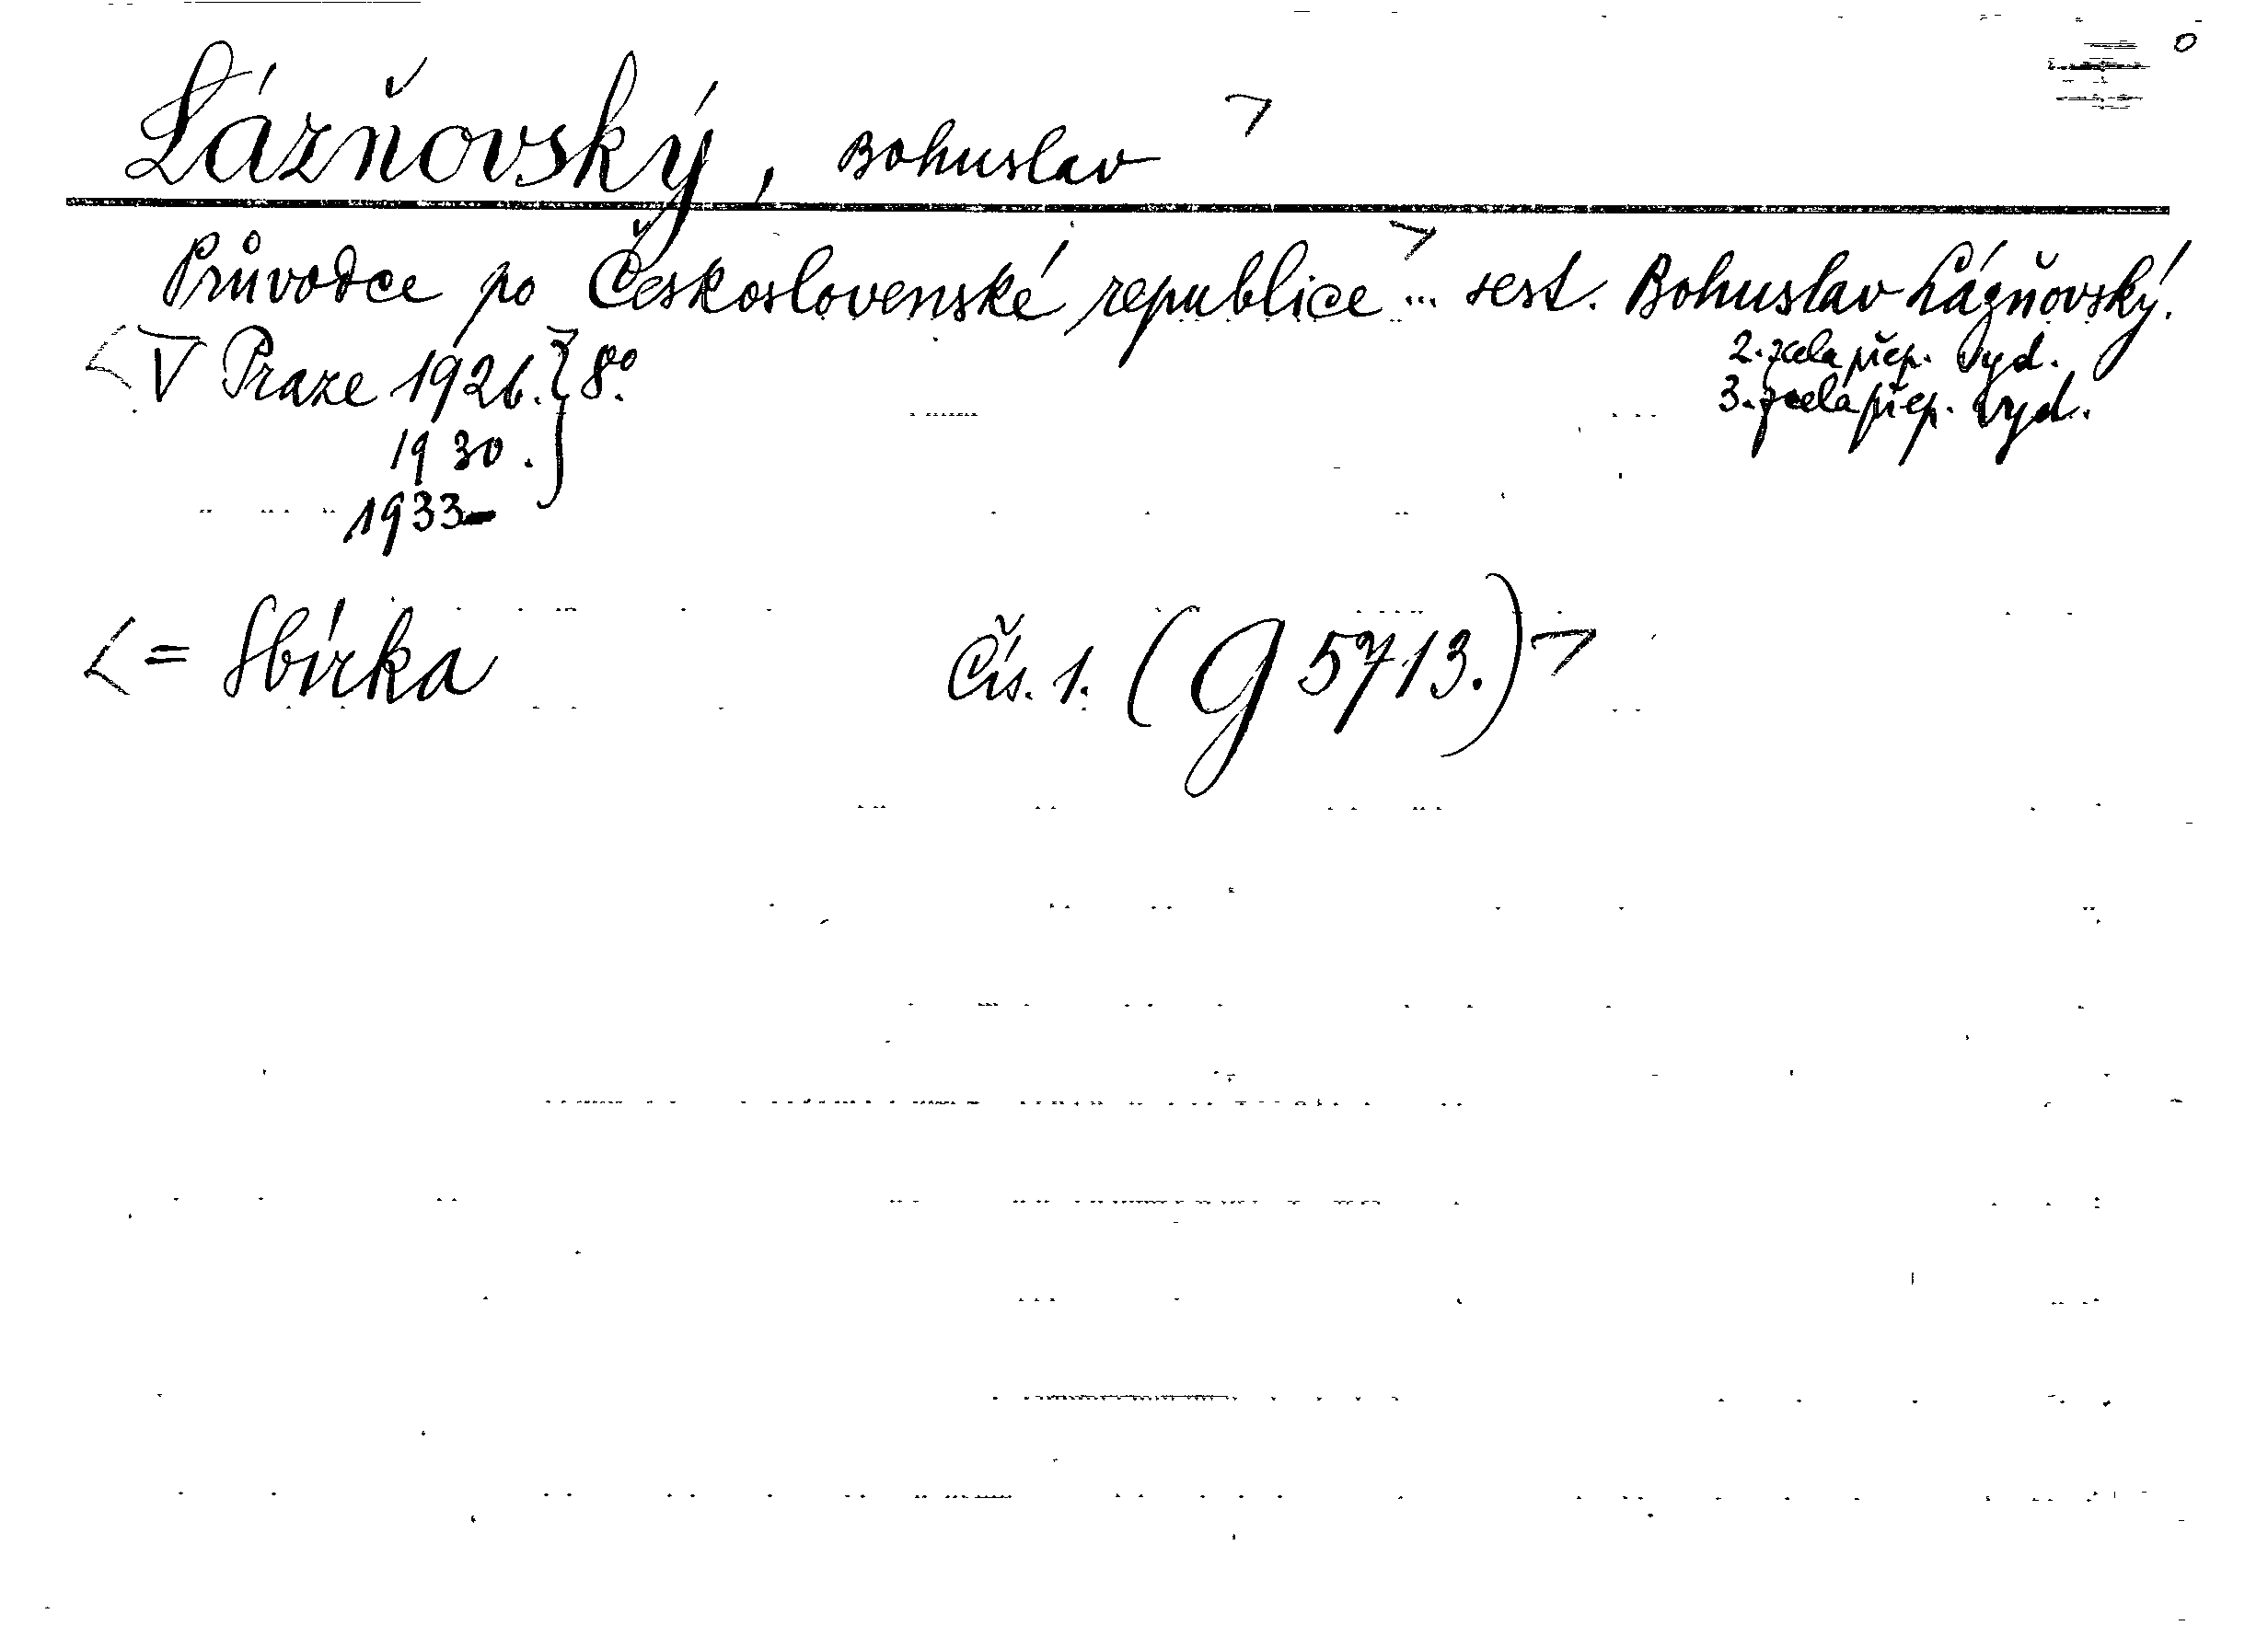 Lázňovský, Bohuslav ¬
Průvodce po Československé republice ¬ ... sest. Bohuslav Lázňovský.
2. zcela přep. vyd.
3. zcela přep. vyd.
V Praze 1926. } 8°.
1930.
1933-
< = Sbírka Čís. 1. (G 5713.) ¬